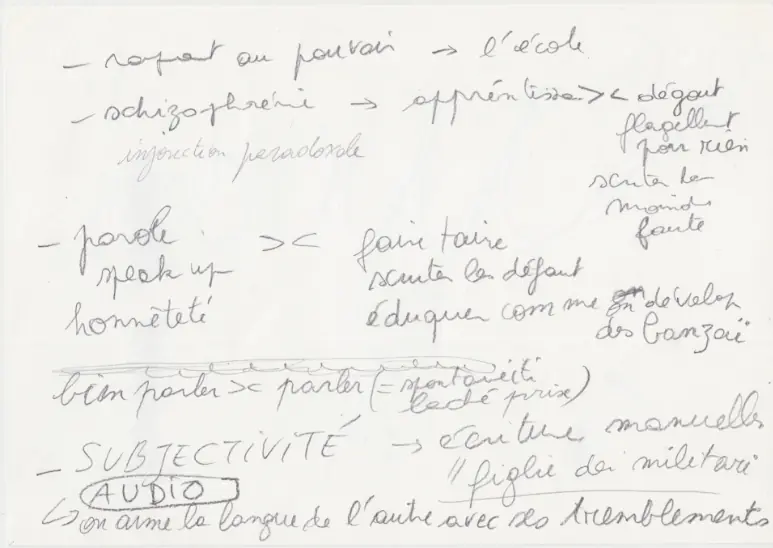 - rapport au pouvoir → l'école
- schizophrénie → apprentissa >< dégout
flagellent
pour rien
injonction paradoxale
scruter la
moindre
faute
- parole >< faire taire
speak up scruter les défaut
honnêteté éduquer comme on develop
des banzaï
bien parler >< parler (= spontanéité
laché prise)
- SUBJECTIVITÉ → écriture manuelles
AUDIO " figlie dei militari
↳ on aime la langue de l'autre avec ses tremblements